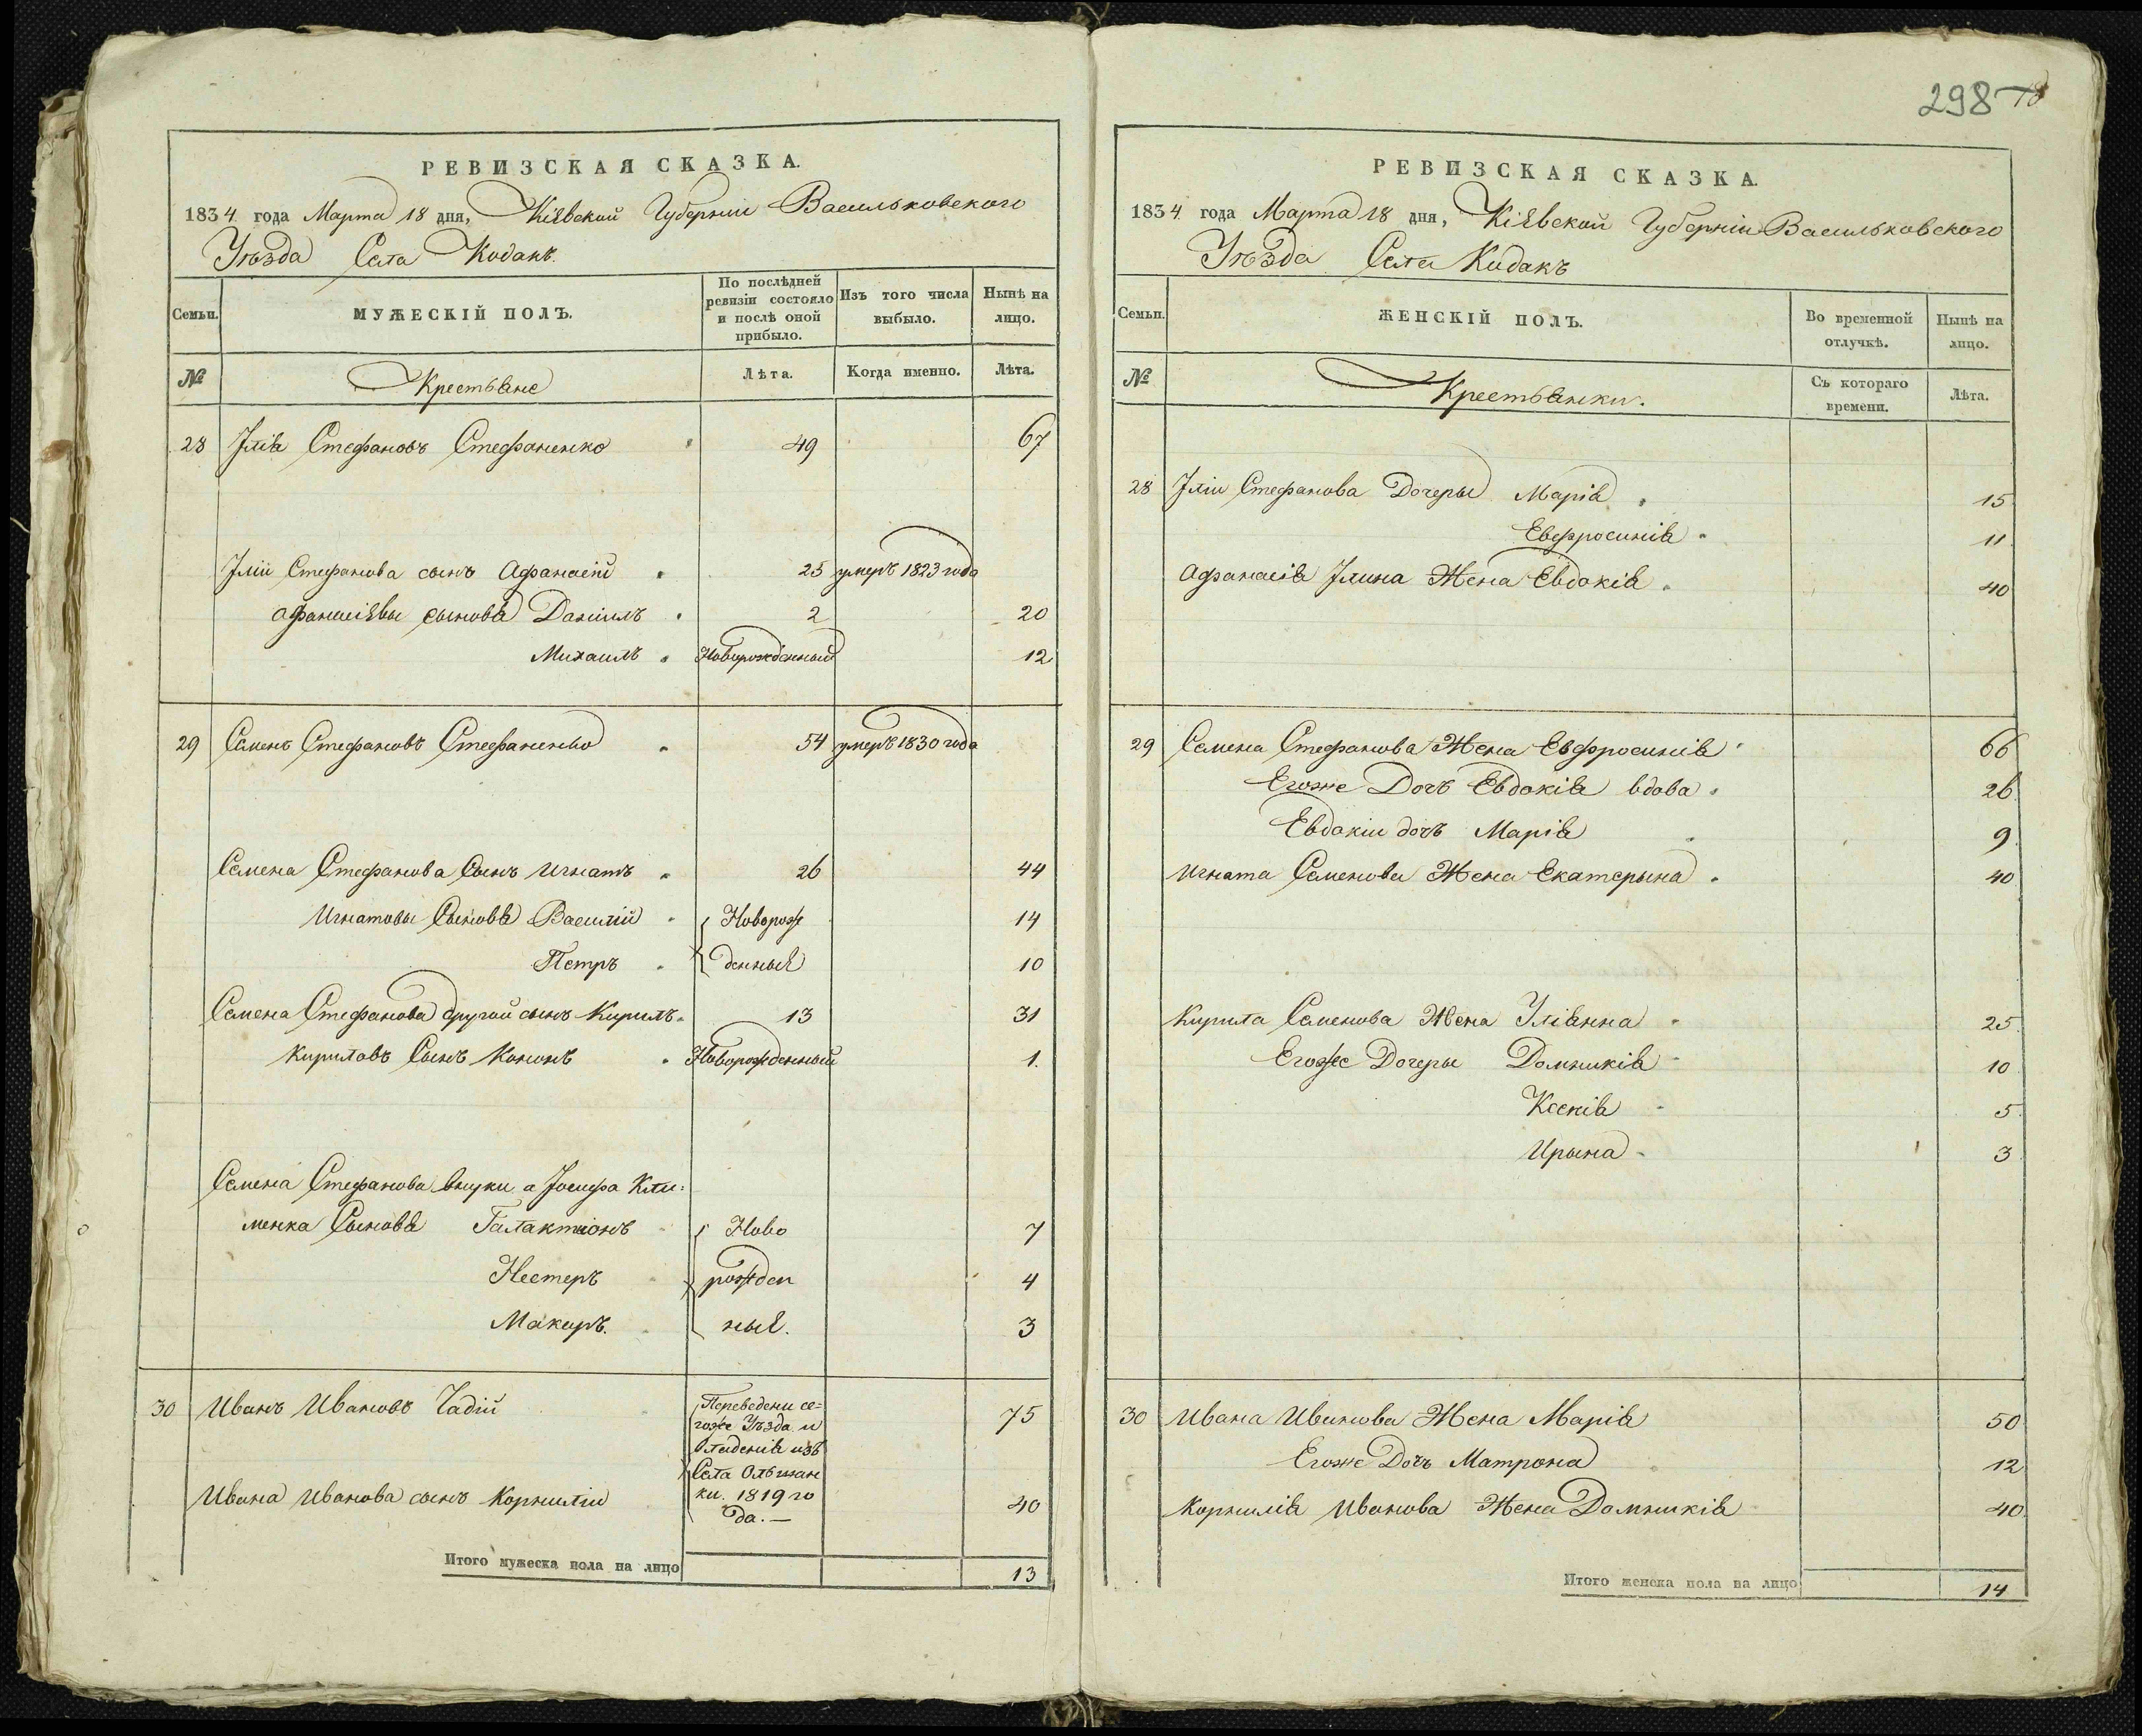 298
18
РЕВИЗСКАЯ СКАЗКА.
1834 года Марта 18 дня, Кіевской Губерніи Васильковского
Уѣзда Села Кодакъ.
Семьи.
МУЖЕСКІЙ ПОЛЪ.
По послѣдней
ревизіи состояло
и послѣ оной
прибыло.
Изъ того числа
выбыло.
Нынѣ на
лицо.
№
Крестьяне
Лѣта.
Когда именно.
Лѣта.
28 Іліа Стефановъ Стефаненко 49 67
Іліи Стефанова сынъ Афанасій 25 умеръ 1823 года
Афанасіевы сыновя Даніилъ 2 20
Михаилъ Новорожденный 12
29 Семенъ Стефановъ Стефаненко 54 умеръ 1830 года
Семена Стефанова Сынъ Игнатъ 26 44
Игнатовы Сыновя Василій Новорож 14
Петръ денные 10
Семена Стефанова другой сынъ Кирилъ 13 31
Кириловъ Сынъ Кононъ Новорожденный 1.
Семена Стефанова внуки а Іосифа Кли:
менка Сыновя Галактионъ Ново 7
Нестеръ рожден 4
Макаръ. ные. 3
30 Иванъ Ивановъ Чадій 75
Переведени се=
гоже Уѣзда и
владенія изъ
Села Ольшан
ки. 1819 го
да.—
Ивана Иванова сынъ Корнилій 40
Итого мужеска пола на лицо 13
РЕВИЗСКАЯ СКАЗКА.
1834 года Марта 18 дня, Кіевской Губерніи Васильковского
Уѣзда Села Кодакъ
Семьи.
ЖЕНСКІЙ ПОЛЪ.
Во временной
отлучкѣ.
Нынѣ на
лицо.
№
Крестьянки.
Съ котораго
времени.
Лѣта.
28 Іліи Стефанова Дочеры Маріа 15
Евфросиніа 11
Афанасія Ілина Жена Евдокіа 40
29 Семена Стефанова Жена Евфросиніа 66
Егоже Дочъ Евдокія вдова 26
Евдокіи дочъ Маріа 9
Игната Семенова Жена Екатерына 40
Кирила Семенова Жена Уліянна 25
Егоже Дочеры Домникіа 10
Ксеніа 5
Ирына 3
30 Ивана Иванова Жена Маріа 50
Егоже Дочъ Матрона 12
Корнилія Иванова Жена Домникіа 40
Итого женска пола на лицо 14